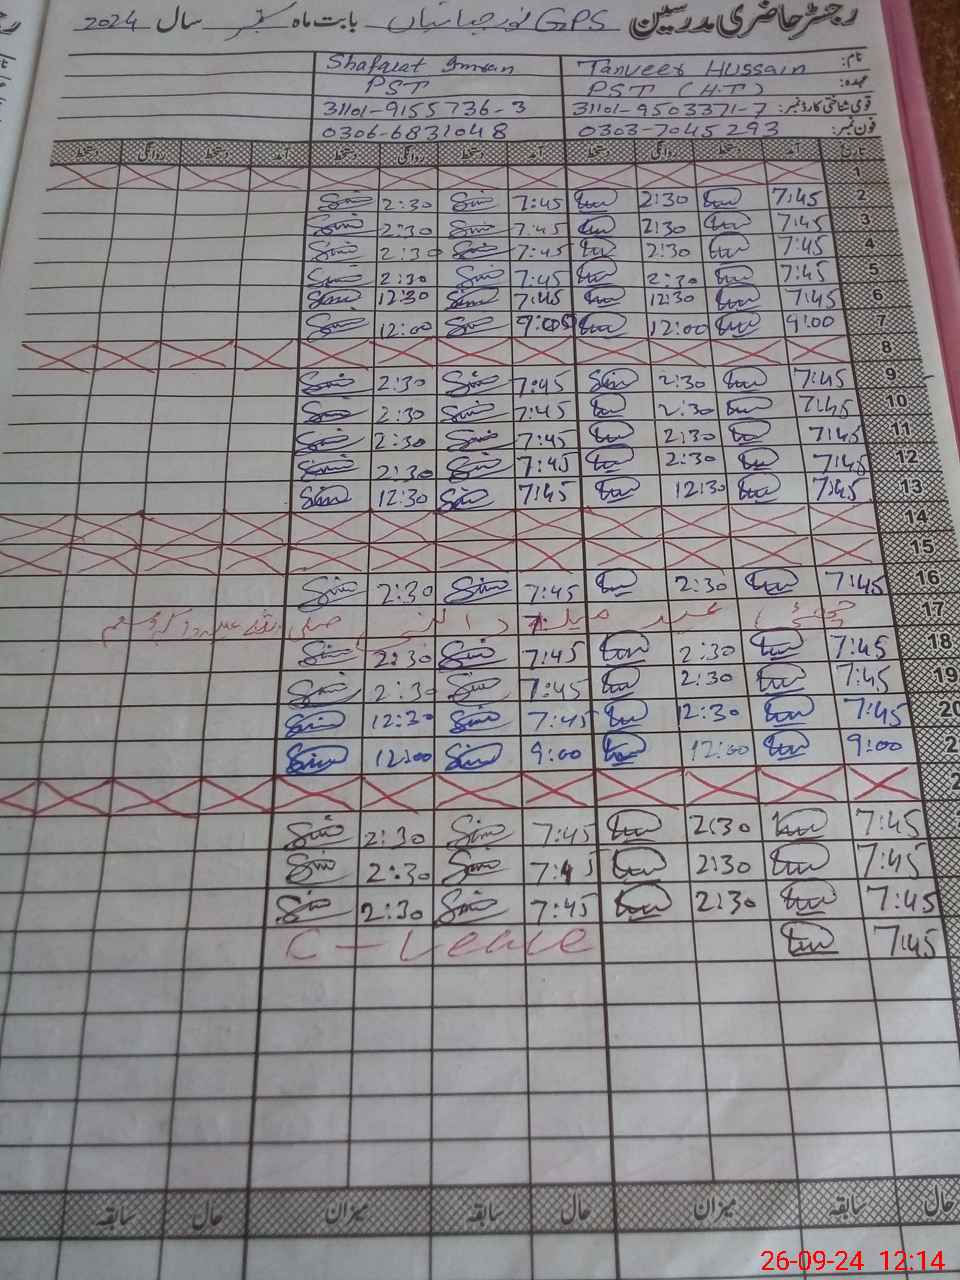 رجسٹر حاضری مدرسین GPS بابت ماہ ستمبر سال 2024
نام: Tanveer Hussain Shafqat Imran
عہدہ: PST (H.T) PST
قومی شناختی کارڈ نمبر: 31101-9503371-7 31101-9155736-3
فون نمبر: 0303-7045293 0306-6831048
تاریخ آمد دستخط روانگی دستخط آمد دستخط روانگی دستخط آمد دستخط روانگی دستخط
1
2 7:45 2:30 7:45 2:30
3 7:45 2:30 7:45 2:30
4 7:45 2:30 7:45 2:30
5 7:45 2:30 7:45 2:30
6 7:45 12:30 7:45 12:30
7 9:00 12:00 9:00 12:00
8
9 7:45 2:30 7:45 2:30
10 7:45 2:30 7:45 2:30
11 7:45 2:30 7:45 2:30
12 7:45 2:30 7:45 2:30
13 7:45 12:30 7:45 12:30
14
15
16 7:45 2:30 7:45 2:30
17 عید میلاد النبی صلی اللہ علیہ وآلہ وسلم
18 7:45 2:30 7:45 2:30
19 7:45 2:30 7:45 2:30
20 7:45 12:30 7:45 12:30
2 9:00 12:00 9:00 12:00
2
7:45 2:30 7:45 2:30
7:45 2:30 7:45 2:30
7:45 2:30 7:45 2:30
7:45 C-Leave
حال سابقہ میزان حال سابقہ میزان حال سابقہ
26-09-24 12:14